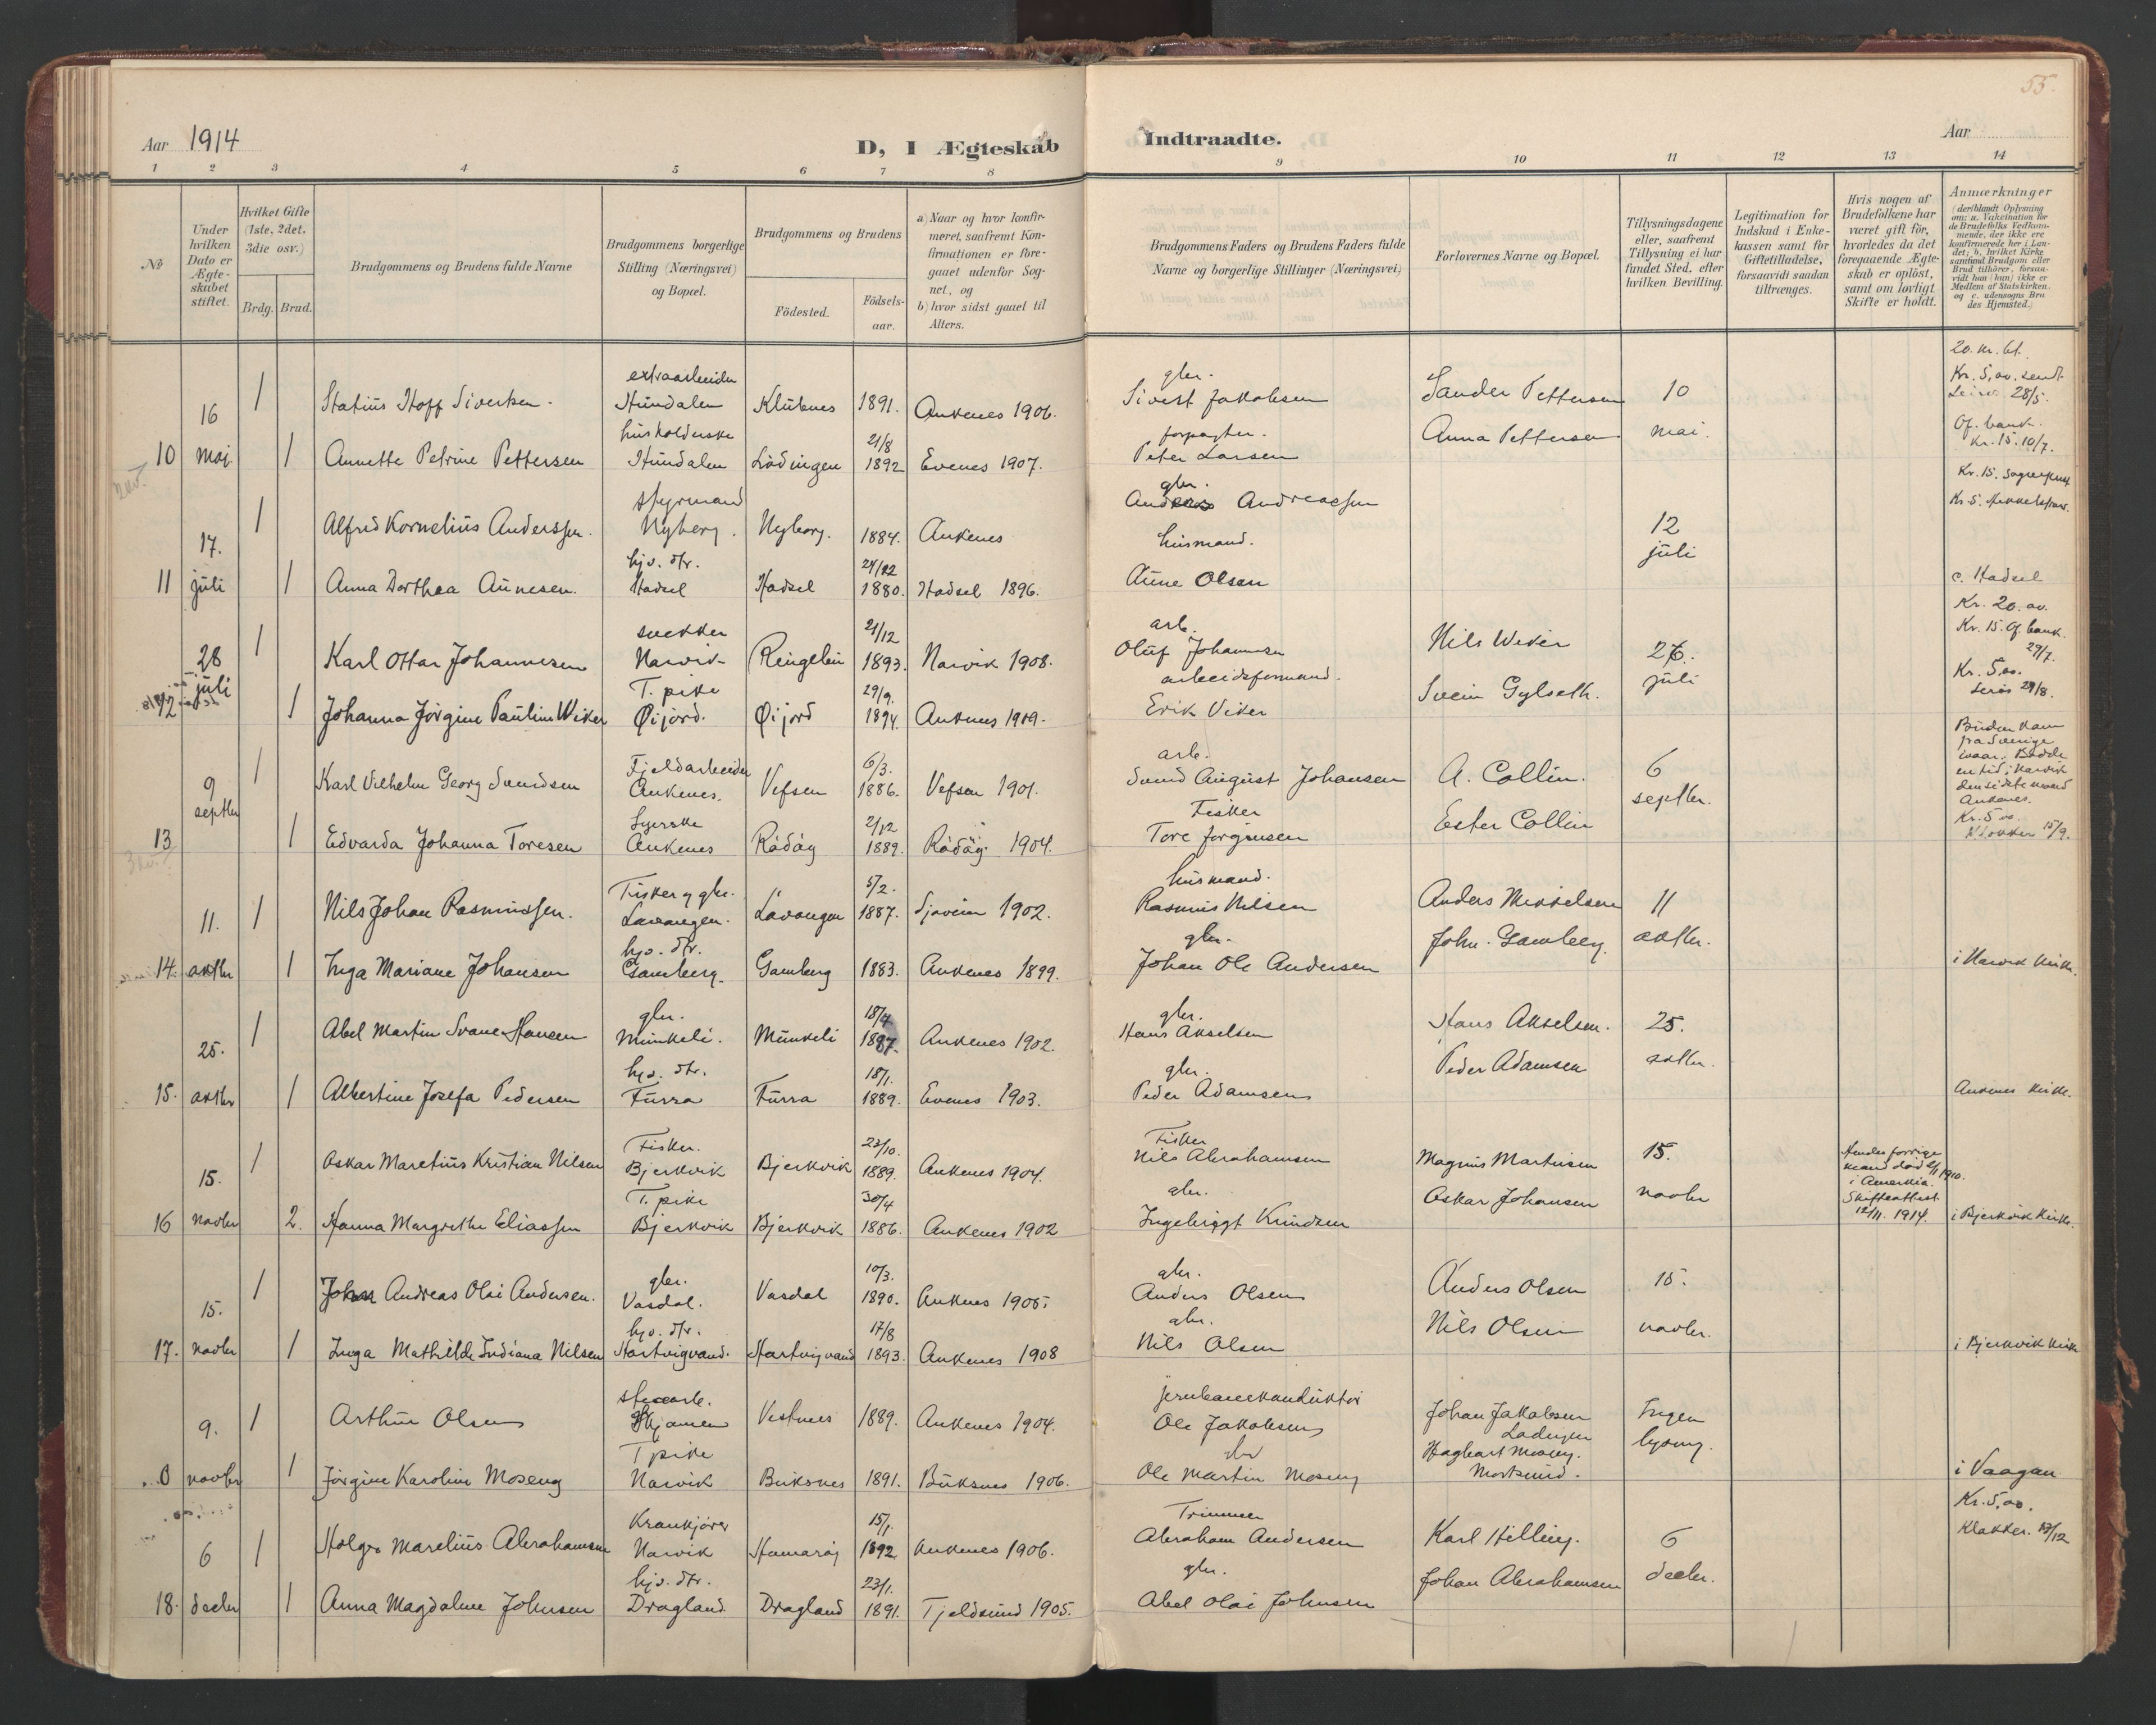 55.
Aar 1914
D, I Ægteskab
Indtraadte.
Aar
1 2 3 4 5 6 7 8 9 10 11 12 13 14
No
Under hvilken Dato er Ægteskabet stiftet.
Hvilket Gifte (1ste, 2det, 3die osv.)
Brdg. Brud.
Brudgommens og Brudens fulde Navne
Brudgommens borgerlige Stilling (Næringsvei) og Bopæl.
Brudgommens og Brudens
Födested.
Födsels-aar.
a) Naar og hvor konfirmeret, saafremt Konfirmationen er foregaaet udenfor Sognet, og
b) hvor sidst gaaet til Alters.
Brudgommens Faders og Brudens Faders fulde Navne og borgerlige Stillinger (Næringsvei)
Forlovernes Navne og Bopæl.
Tillysningsdagene eller, saafremt Tillysning ei har fundet Sted, efter hvilken Bevilling.
Legitimation for Indskud i Enkekassen samt for Giftetilladelse, forsaavidt saadan tiltrænges.
Hvis nogen af Brudefolkene har været gift för, hvorledes da det foregaaende Ægteskab er oplöst, samt om lovligt Skifte er holdt.
Anmærkninger
(deriblandt Oplysning om: a. Vakcination for de Brudefolks Vedkommende, der ikke ere konfirmerede her i Landet; b. hvilket Kirkesamfund Brudgom eller Brud tilhörer, forsaavidt han (hun) ikke er Medlem af Statskirken, og c. udensogns Brudes Hjemsted.)
extraarbeider gbr. 20. kr. bt.
16 1 Statius Hoff Sivertsen. Hundalen Klubnes 1891. Ankenes 1906. Sivert Jakobsen Sander Pettersen 10 Kr. 5,00. sendt 28/5.
husholderske 21/8 forpagter.
10 mai 1 Annette Petrine Pettersen Hundalen Lödingen 1892 Evenes 1907. Peter Larsen Anna Pettersen mai. Of. bank. Kr. 15. 10/7.
styrmand gbr. Kr. 15.
17. 1 Alfred Kornelius Anderssen. Nyberg. Nyborg. 1884. Ankenes Anders Andreassen 12 Kr. 5.
hjv. dtr. 24/12 husmand.
11 juli 1 Anna Dorthea Aunesen. Hadsel Hadsel 1880. Hadsel 1896. Aune Olsen juli c. Hadsel
snekker 21/12 arb. Kr. 20. av.
28 1 Karl Ottar Johannesen Narvik Ringebu 1893. Narvik 1908. Oluf Johannesen Nils Wiker 26. Kr. 15. Of. bank. 29/7.
T. pike 29/9. arbeidsformand. Kr. 5,00.
12 juli 1 Johanna Jörgine Pauline Wiker Öijord. Öijord 1894. Ankenes 1909. Erik Viker Svein Gylseth. juli 29/8.
Fjeldarbeider 6/3. arb. Bruden kam fra Sverige
9 1 Karl Vilhelm Georg Svendsen Ankenes. Vefsen 1886. Vefsen 1901. Svend August Johansen A. Collin. 6 en tid i Narvik
Syerske 2/12 Fisker Ankenes.
13 septbr 1 Edvarda Johanna Toresen Ankenes Rödöy 1889. Rödöy 1904. Tore Jörgensen Ester Collin septbr. Kr. 5 Klokker 15/9.
Fisker og gbr. 5/2. husmand.
11. 1 Nils Johan Rasmussen. Lavangen. Lavangen 1887. Sjøvein 1902. Rasmus Nilsen Anders Mikkelsen 11
hjv. dtr. gbr.
14. oktbr 1 Inga Mariane Johansen Gamberg. Gamberg 1883. Ankenes 1899. Johan Ole Andersen John Gamberg. oktbr. i Narvik kirke.
gbr. 18/4 gbr.
25. 1 Abel Martin Svane Hansen Münkeli. Münkeli 1887. Ankenes 1902. Hans Akselsen Hans Akselsen. 25.
hjv. dtr. 18/1. gbr.
15. oktbr 1 Albertine Josefa Pedersen Furra Furra 1889. Evenes 1903. Peder Adamsen Peder Adamsen oktbr. Ankenes kirke.
Fisker. 23/10. Fisker
15. 1 Oskar Maretius Kristian Nilsen Bjerkvik Bjerkvik 1889. Ankenes 1904. Nils Abrahamsen Magnus Martinsen 15. Hendes forrige mand död 1910. i Amerika.
T. pike 30/4 gbr. Skifteattest
16 novbr 2. Hanna Margrethe Eliassen Bjerkvik Bjerkvik 1886. Ankenes 1902 Ingebrigt Knudsen Oskar Johansen novbr 12/11. 1914. i Bjerkvik kirke.
gbr. 10/3. gbr.
15. 1 Johan Andreas Olai Andersen. Vasdal. Vasdal 1890. Ankenes 1905. Anders Olsen Anders Olsen 15.
hjv. dtr. 17/8 gbr.
17. novbr 1 Inga Mathilde Indiana Nilsen Hartvigvand. Hartvigvand 1893. Ankenes 1908 Nils Olsen Nils Olsen novbr. i Bjerkvik kirke
jernbanekonduktör
9. 1 Arthur Olsen Skjomen Vestnes 1889. Ankenes 1904. Ole Jakobsen Johan Jakobsen Ingen
T pike gbr
novbr 1 Jörgine Karoline Moseng Narvik Buksnes 1891. Buksnes 1906. Ole Martin Moseng Hagbart Moseng. Mortsund. lysning. i Vaagan
Krankjörer 15/1. Trimmer Kr. 5,00.
6 1 Holger Marelius Abrahamsen Narvik Hamaröy 1892 Ankenes 1906. Abraham Andersen Karl Hilling. 6 Klokker. /12
hjv. dtr. 23/1. gbr.
18. decbr 1 Anna Magdalene Johnsen Dragland. Dragland 1891. Tjeldsund 1905. Abel Olai Johnsen Johan Abrahamsen decbr.